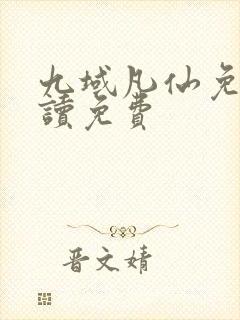 九域凡仙免
讀免費
晋文婧